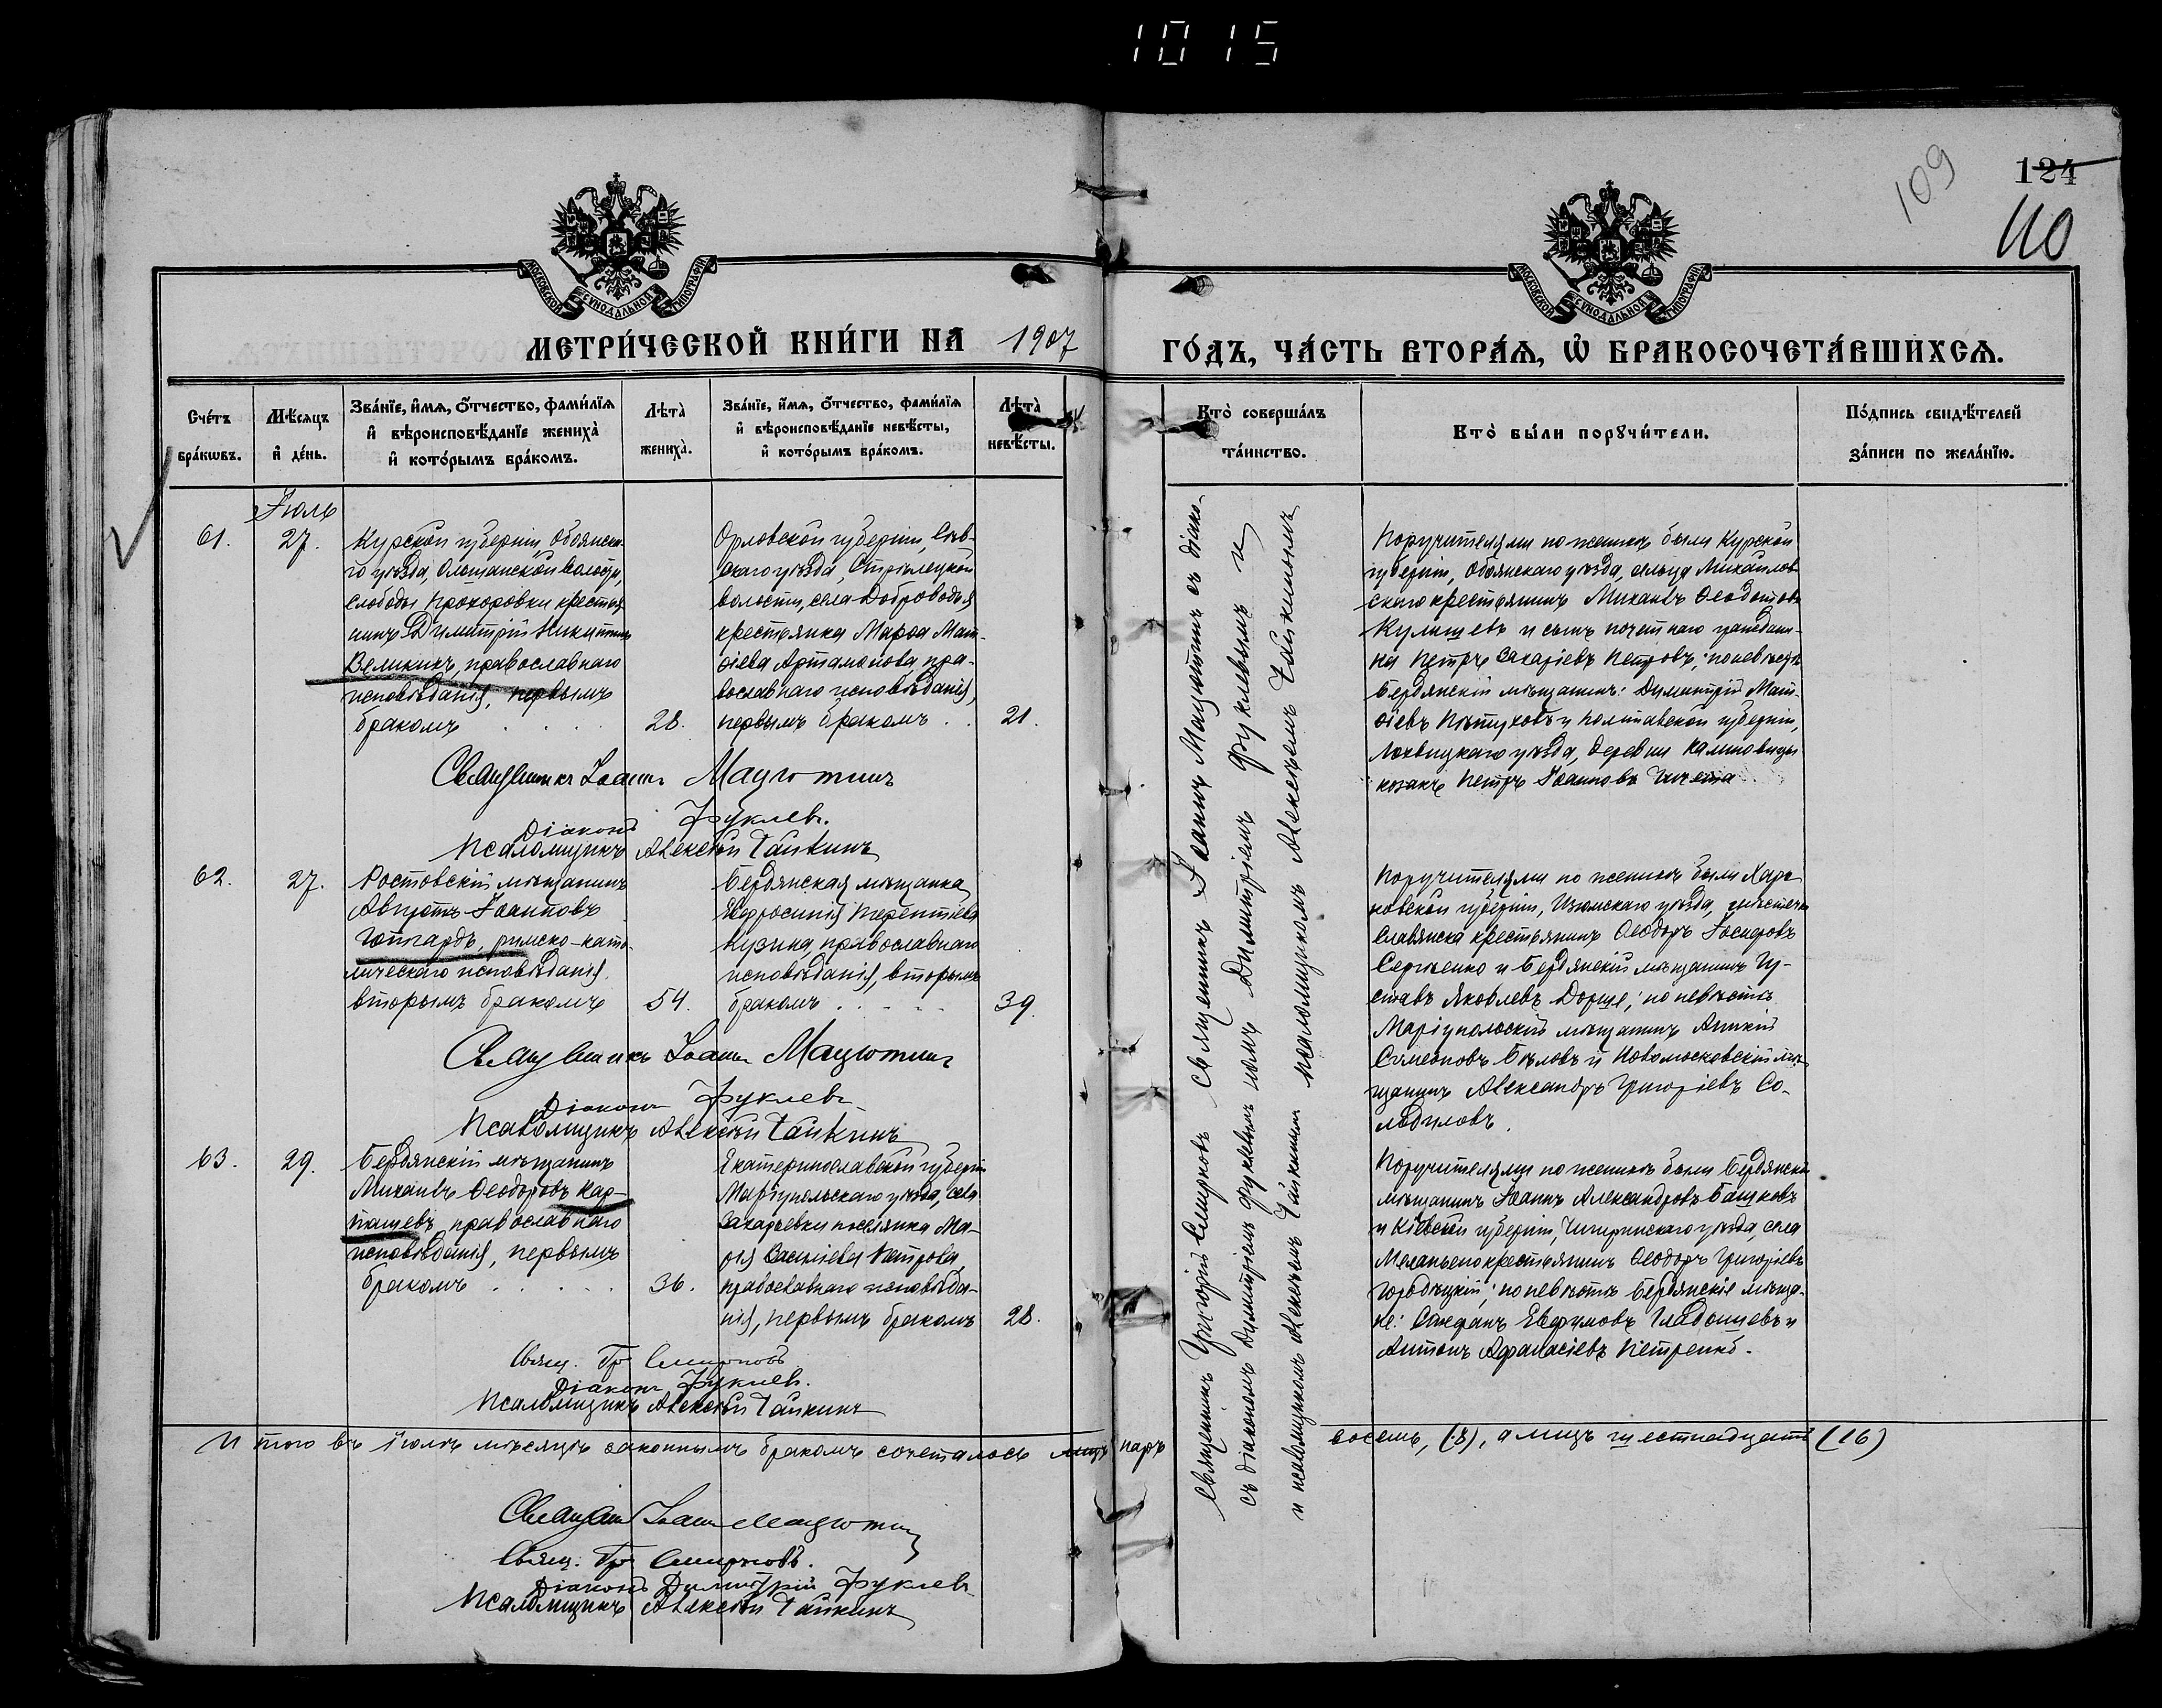 1015
109
124
110
МОСКОВСКОЙ СѴНОДАЛЬНОЙ ТИПОГРАФІИ
МОСКОВСКОЙ СѴНОДАЛЬНОЙ ТИПОГРАФІИ
МЕТРИ́ЧЕСКОЙ КНИ́ГИ НА 1907
ГО́ДЪ, ЧА́СТЬ ВТОРА́Ѧ, Ѽ БРАКОСОЧЕТА́ВШИХСѦ.
Сче́тъ бра́кѡвъ.
Мѣ́сѧцъ и҆ де́нь.
Зва́нїе, и҆́мѧ, ѻ҆́тчество, фами́лїѧ
и҆ вѣроисповѣ́данїе жениха̀
и҆ кото́рымъ бра́комъ.
Лѣ́та̀ жениха̀.
Зва́нїе, и҆́мѧ, ѻ҆́тчество, фами́лїѧ
и҆ вѣроисповѣ́данїе невѣ́сты,
и҆ кото́рымъ бра́комъ.
Лѣ́та̀ невѣ́сты.
Кто̀ соверша́лъ
та́инство.
Кто̀ бы́ли порꙋчи́тели.
По́дпись свидѣ́телей
за́писи по жела́нїю.
Іюль
61.
27.
Курской губерніи, Обоянска-
го уѣзда, Ольшанской волости,
слободы Прохоровки крестья-
нинъ Димитрій Никитинъ
Великихъ, православнаго
исповѣданія, первымъ
бракомъ
28.
Орловской губерніи, Сѣв-
скаго уѣзда, Стрѣлецкой
волости, села Доброводья
крестьянка Марѳа Мат-
ѳіева Артамонова, пра-
вославнаго исповѣданія,
первымъ бракомъ
21.
Поручителями по женихѣ были Курской
губерніи, Обоянскаго уѣзда, сельца Михайлов-
скаго крестьянинъ Михаилъ Ѳеодотовъ
Кулишевъ и сынъ почетнаго граждани-
на Петръ Захаріевъ Петровъ; по невѣстѣ
Бердянскій мѣщанинъ: Димитрій Мат-
ѳіевъ Пѣтуховъ и Полтавской губерніи,
Лохвицкаго уѣзда, деревни Калиновицы
козакъ Петръ Іоанновъ
Священникъ Іоаннъ Мацютинъ
Діаконъ Фуклевъ.
Псаломщикъ Алексѣй Чайкинъ
62.
27.
Ростовскій мѣщанинъ
Августъ Іоанновъ
Готгардъ, римско-като-
лическаго исповѣданія,
вторымъ бракомъ
54.
Бердянская мѣщанка
Евфросинія Терентіева
Кузина, православнаго
исповѣданія, вторымъ
бракомъ
39.
Поручителями по женихѣ были Харь-
ковской губерніи, Изюмскаго уѣзда, мѣстечка
Славянска крестьянинъ Ѳеодоръ Іосифовъ
Сергіенко и Бердянскій мѣщанинъ Гу-
ставъ Яковлевъ Дорше; по невѣстѣ
Маріупольскій мѣщанинъ Аникій
Симеоновъ Бѣловъ и Новомосковскій мѣ-
щанинъ Александръ Григоріевъ Со-
лодиловъ.
Священникъ Іоаннъ Мацютинъ
Діаконъ Фуклевъ
Псаломщикъ Алексѣй Чайкинъ
63.
29.
Бердянскій мѣщанинъ
Михаилъ Ѳеодоровъ Кар-
ташевъ, православнаго
исповѣданія, первымъ
бракомъ
36.
Екатеринославской губерніи
Маріупольскаго уѣзда, села
Захарьевки поселянка Ма-
рія Василіева Петрова,
православнаго исповѣда-
нія, первымъ бракомъ
28.
Поручителями по женихѣ были Бердянскій
мѣщанинъ Іоаннъ Александровъ Башковъ
и Кіевской губерніи, Чигиринскаго уѣзда, села
крестьянинъ Ѳеодоръ Григоріевъ
Городецкій; по невѣстѣ Бердянскіе мѣща-
не: Стефанъ Евфимовъ Гладышевъ и
Антонъ Аѳанасіевъ Петренко.
Свящ. Гр. Смирновъ
Діаконъ Фуклевъ.
Псаломщикъ Алексѣй Чайкинъ
священникъ Григорій Смирновъ священникъ Іоаннъ Мацютинъ съ діако-
съ діакономъ Димитріемъ Фуклевымъ номъ Димитріемъ Фуклевымъ и
и псаломщикомъ Алексѣемъ Чайкинымъ псаломщикомъ Алексѣемъ Чайкинымъ
Итого въ іюлѣ мѣсяцѣ законнымъ бракомъ сочеталось лицъ паръ восемь, (8), а лицъ шестнадцать (16)
Священникъ Іоаннъ Мацютинъ
Свящ. Гр. Смирновъ.
Діаконъ Димитрій Фуклевъ
Псаломщикъ Алексѣй Чайкинъ